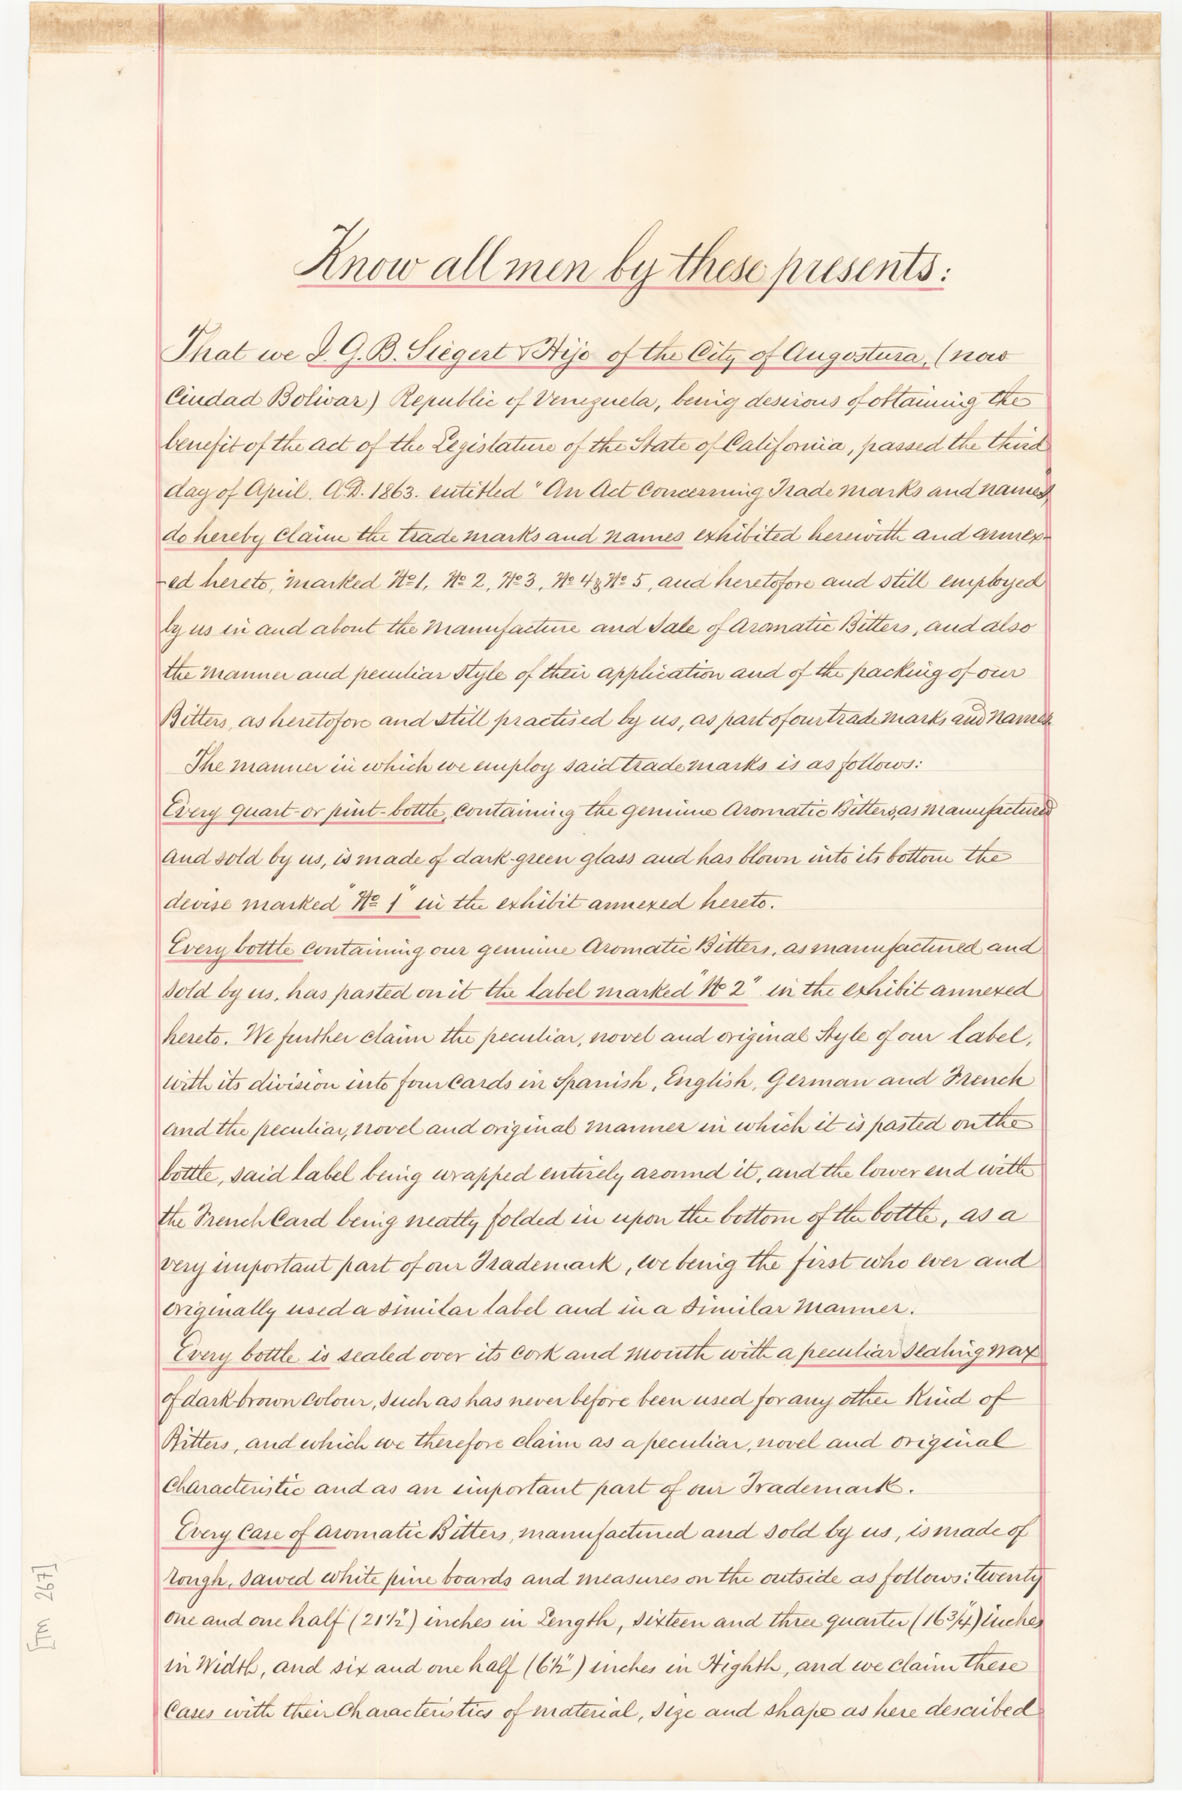 Know all men by these presents:
That we J. G. B. Siegert & Hijo of the City of Augostura, (now
Ciudad Bolivar) Republic of Venezuela, being desirous of obtaining the
benefit of the act of the Legislature of the State of California, passed the third
day of April. A.D. 1863. entitled "An Act concerning Trade marks and names",
do hereby claim the trade marks and names exhibited herewith and annex-
-ed hereto, marked No 1, No 2, No 3, No 4 & No 5, and heretofore and still employed
by us in and about the manufacture and Sale of Aromatic Bitters, and also
the manner and peculiar style of their application and of the packing of our
Bitters, as heretofore and still practised by us, as part of our trade marks and names.
The manner in which we employ said trade marks is as follows:
Every quart- or pint-bottle, containing the genuine Aromatic Bitters, as manufactured
and sold by us, is made of dark-green glass and has blown into its bottom the
devise marked "No 1" in the exhibit annexed hereto.
Every bottle containing our genuine Aromatic Bitters, as manufactured and
sold by us, has pasted on it the label marked "No 2" in the exhibit annexed
hereto. We further claim the peculiar, novel and original Style of our label,
with its division into four cards in Spanish, English, German and French
and the peculiar, novel and original manner in which it is pasted on the
bottle, said label being wrapped entirely around it, and the lower end with
the French Card being neatly folded in upon the bottom of the bottle, as a
very important part of our Trademark, we being the first who ever and
originally used a similar label and in a similar manner.
Every bottle is sealed over its cork and mouth with a peculiar sealing wax
of dark-brown colour, such as has never before been used for any other kind of
Bitters, and which we therefore claim as a peculiar, novel and original
characteristic and as an important part of our Trademark.
Every case of Aromatic Bitters, manufactured and sold by us, is made of
rough, sawed white pine boards and measures on the outside as follows: twenty
one and one half (21½") inches in Length, sixteen and three quarter (16¾") inches
in Width, and six and one half (6½") inches in Highth, and we claim these
cases with their characteristics of material, size and shape as here described
[TM 267]